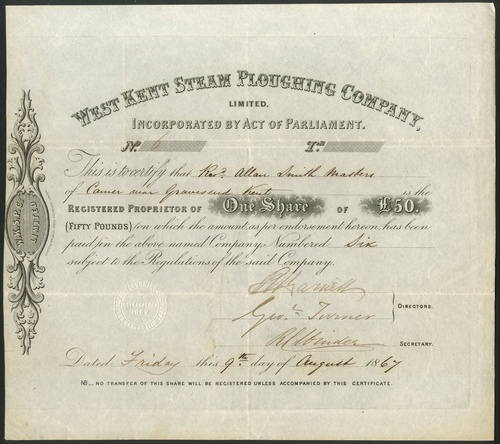 WEST KENT STEAM PLOUGHING COMPANY,
LIMITED,
INCORPORATED BY ACT OF PARLIAMENT.
No. 6 To
This is to certify that Revd. Allan Smith Masters
of Camer near Gravesend Kent is the
REGISTERED PROPRIETOR OF One Share OF £50.
(FIFTY POUNDS) on which the amount as per endorsement hereon has been
paid in the above named Company Numbered Six
subject to the Regulations of the said Company.
Geo. Turner
DIRECTORS.
SECRETARY.
Dated Friday this 9th day of August 1867
NB... NO TRANSFER OF THIS SHARE WILL BE REGISTERED UNLESS ACCOMPANIED BY THIS CERTIFICATE.